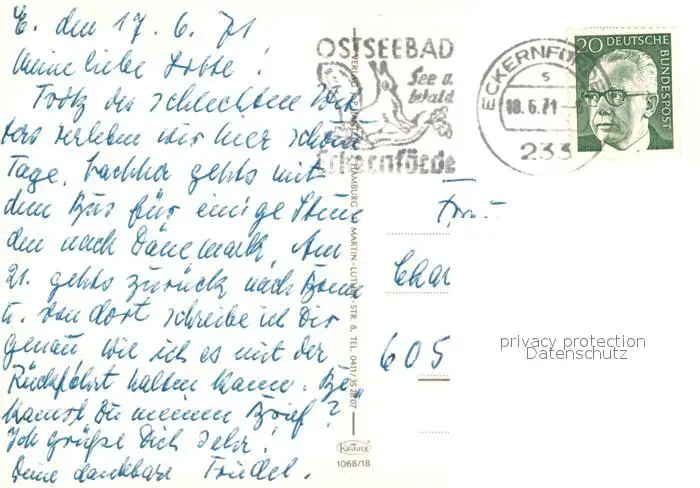 E. den 17. 6. 71
Meine liebe Lotte!
Trotz des schlechten Wet-
ters verleben wir hier schöne
Tage. Nachher gehts mit
dem Bus für einige Stun
den nach Dänemark. Am
21. gehts zurück nach Bonn
u. von dort schreibe ich Dir
genau wie ich es mit der
Rückfahrt halten kann. Be-
kamst Du meinen Brief?
Ich grüße Dich sehr!
Deine dankbare Friedel.
OSTSEEBAD
See u.
Wald
Eckernförde
ECKERNFÖRDE
s
18.6.71
233
20 DEUTSCHE
BUNDESPOST
VERLAG
HAMBURG MARTIN-LUTHER-STR. 8, TEL. 0411/352807
KRÜGER
1068/18
Frau
Char
605
privacy protection
Datenschutz